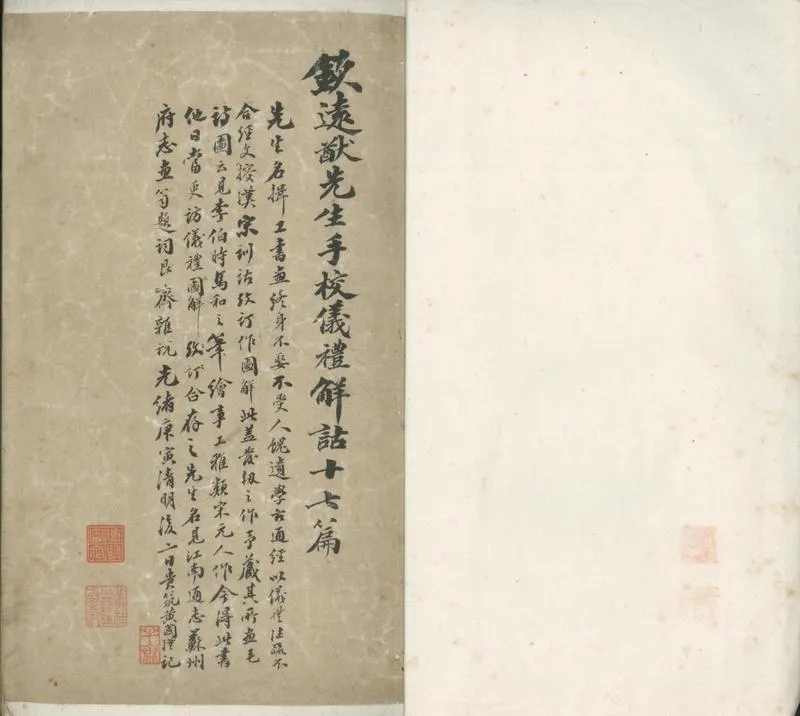 欽遠猷先生手校儀禮解詁十七篇
先生名揖工書画終身不娶不受人餽遺學古通經以儀禮注疏不
合經文授漢宋訓詁攷訂作圖解此蓋發軔之作予藏其所画毛
詩圖云見李伯時馬和之筆繪事工雅類宋元人作今得此書
他日當更訪儀禮圖解攷訂合存之先生名見江南通志蘇州
府志画菊題詞艮齋雜說光緒庚寅清明後二日貴筑黃國瑾記